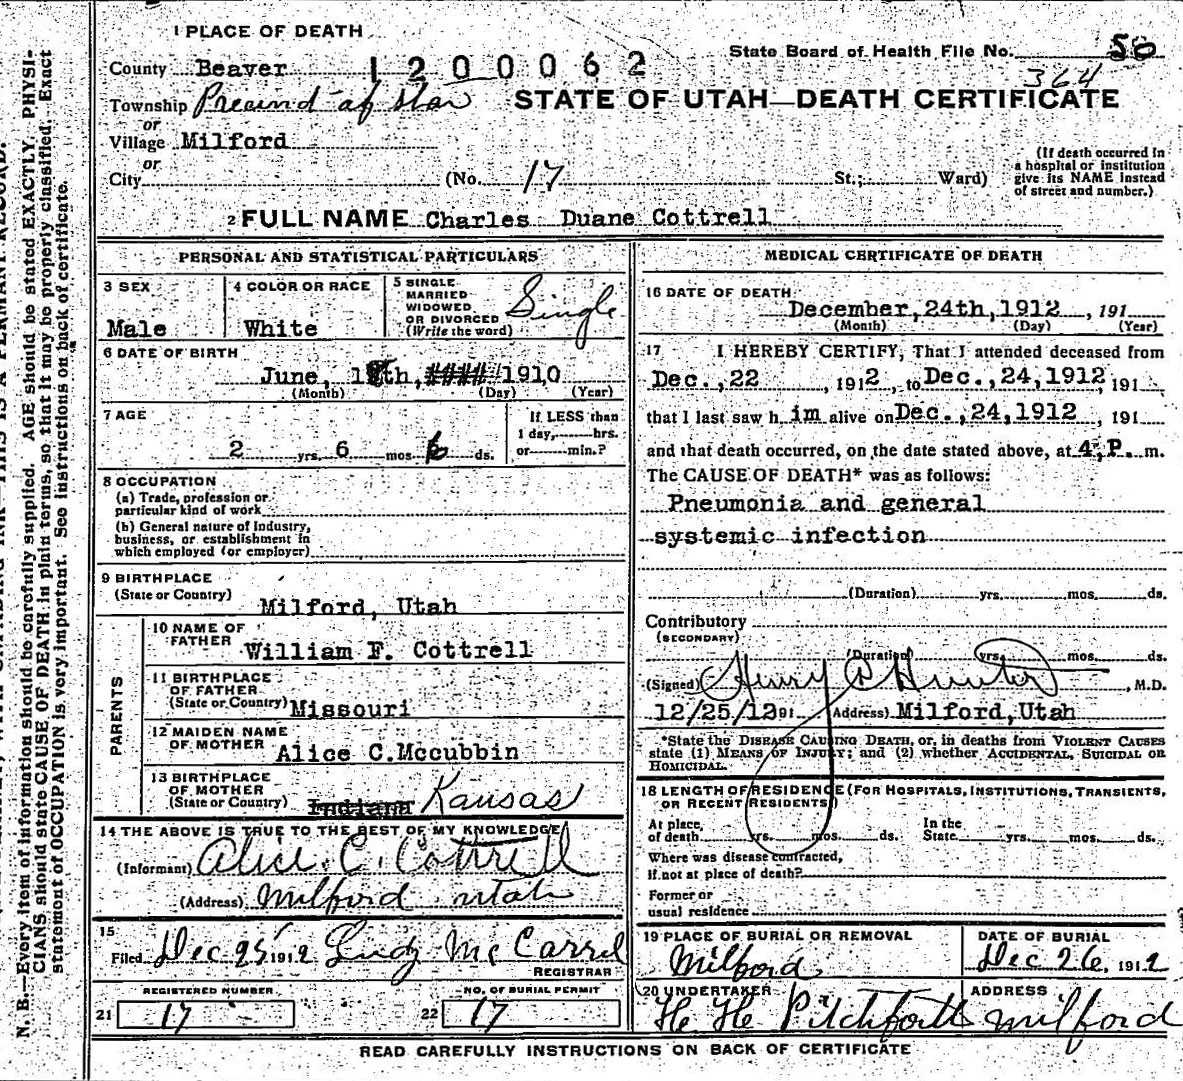 1 PLACE OF DEATH
State Board of Health File No. 50
County Beaver 1200062
364
Township Precinct of Star STATE OF UTAH—DEATH CERTIFICATE
or
Village Milford
or
City (No. 17 St.; Ward)
(If death occurred in
a hospital or institution
give its NAME instead
of street and number.)
2 FULL NAME Charles Duane Cottrell
PERSONAL AND STATISTICAL PARTICULARS
3 SEX
Male
4 COLOR OR RACE
White
5 SINGLE
MARRIED
WIDOWED
OR DIVORCED
(Write the word)
Single
6 DATE OF BIRTH
June, 18th, #### 1910
(Month) (Day) (Year)
7 AGE
2 yrs. 6 mos. 6 ds.
If LESS than
1 day, hrs.
or min.?
8 OCCUPATION
(a) Trade, profession or
particular kind of work
(b) General nature of industry,
business, or establishment in
which employed (or employer)
9 BIRTHPLACE
(State or Country)
Milford, Utah
PARENTS
10 NAME OF
FATHER
William F. Cottrell
11 BIRTHPLACE
OF FATHER
(State or Country) Missouri
12 MAIDEN NAME
OF MOTHER
Alice C. Mccubbin
13 BIRTHPLACE
OF MOTHER
(State or Country) Indiana Kansas
14 THE ABOVE IS TRUE TO THE BEST OF MY KNOWLEDGE
(Informant) Alice. C. Cottrell
(Address) Milford utah
15
Filed Dec 25 1912 McCarrel
REGISTRAR
REGISTERED NUMBER
21 17
NO. OF BURIAL PERMIT
22 17
MEDICAL CERTIFICATE OF DEATH
16 DATE OF DEATH
December, 24th, 1912, 191
(Month) (Day) (Year)
17 I HEREBY CERTIFY, That I attended deceased from
Dec., 22, 1912, to Dec., 24, 1912, 191
that I last saw h im alive on Dec., 24, 1912, 191
and that death occurred, on the date stated above, at 4, P. m.
The CAUSE OF DEATH* was as follows:
Pneumonia and general
systemic infection
(Duration) yrs. mos. ds.
Contributory
(SECONDARY)
(Duration) yrs. mos. ds.
(Signed) Henry P Hunter, M.D.
12/25/12 91 (Address) Milford, Utah
*State the DISEASE CAUSING DEATH, or, in deaths from VIOLENT CAUSES
state (1) MEANS OF INJURY; and (2) whether ACCIDENTAL, SUICIDAL OR
HOMICIDAL.
18 LENGTH OF RESIDENCE (FOR HOSPITALS, INSTITUTIONS, TRANSIENTS,
OR RECENT RESIDENTS)
At place
of death yrs. mos. ds.
In the
State yrs. mos. ds.
Where was disease contracted,
if not at place of death?
Former or
usual residence
19 PLACE OF BURIAL OR REMOVAL
Milford
DATE OF BURIAL
Dec 26, 1912
20 UNDERTAKER
Pitchforth
ADDRESS
Milford
READ CAREFULLY INSTRUCTIONS ON BACK OF CERTIFICATE
N. B.—Every item of information should be carefully supplied. AGE should be stated EXACTLY. PHYSI-
CIANS should state CAUSE OF DEATH in plain terms, so that it may be properly classified. Exact
statement of OCCUPATION is very important. See instructions on back of certificate.
THIS IS A PERMANENT RECORD.